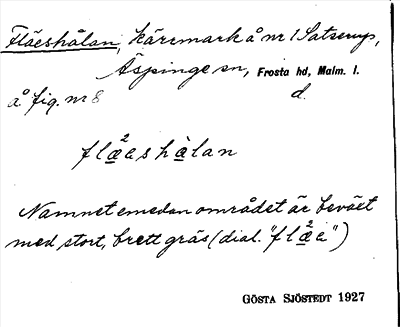 Fläeshålan, kärrmark å nr 1 Satserup,
Äspinge sn, Frosta hd, Malm. l.
å fig. nr 8 d.
flæ²es hålan
Namnet emedan området är beväxt
med stort, brett gräs (dial. "flæ²e")
GÖSTA SJÖSTEDT 1927